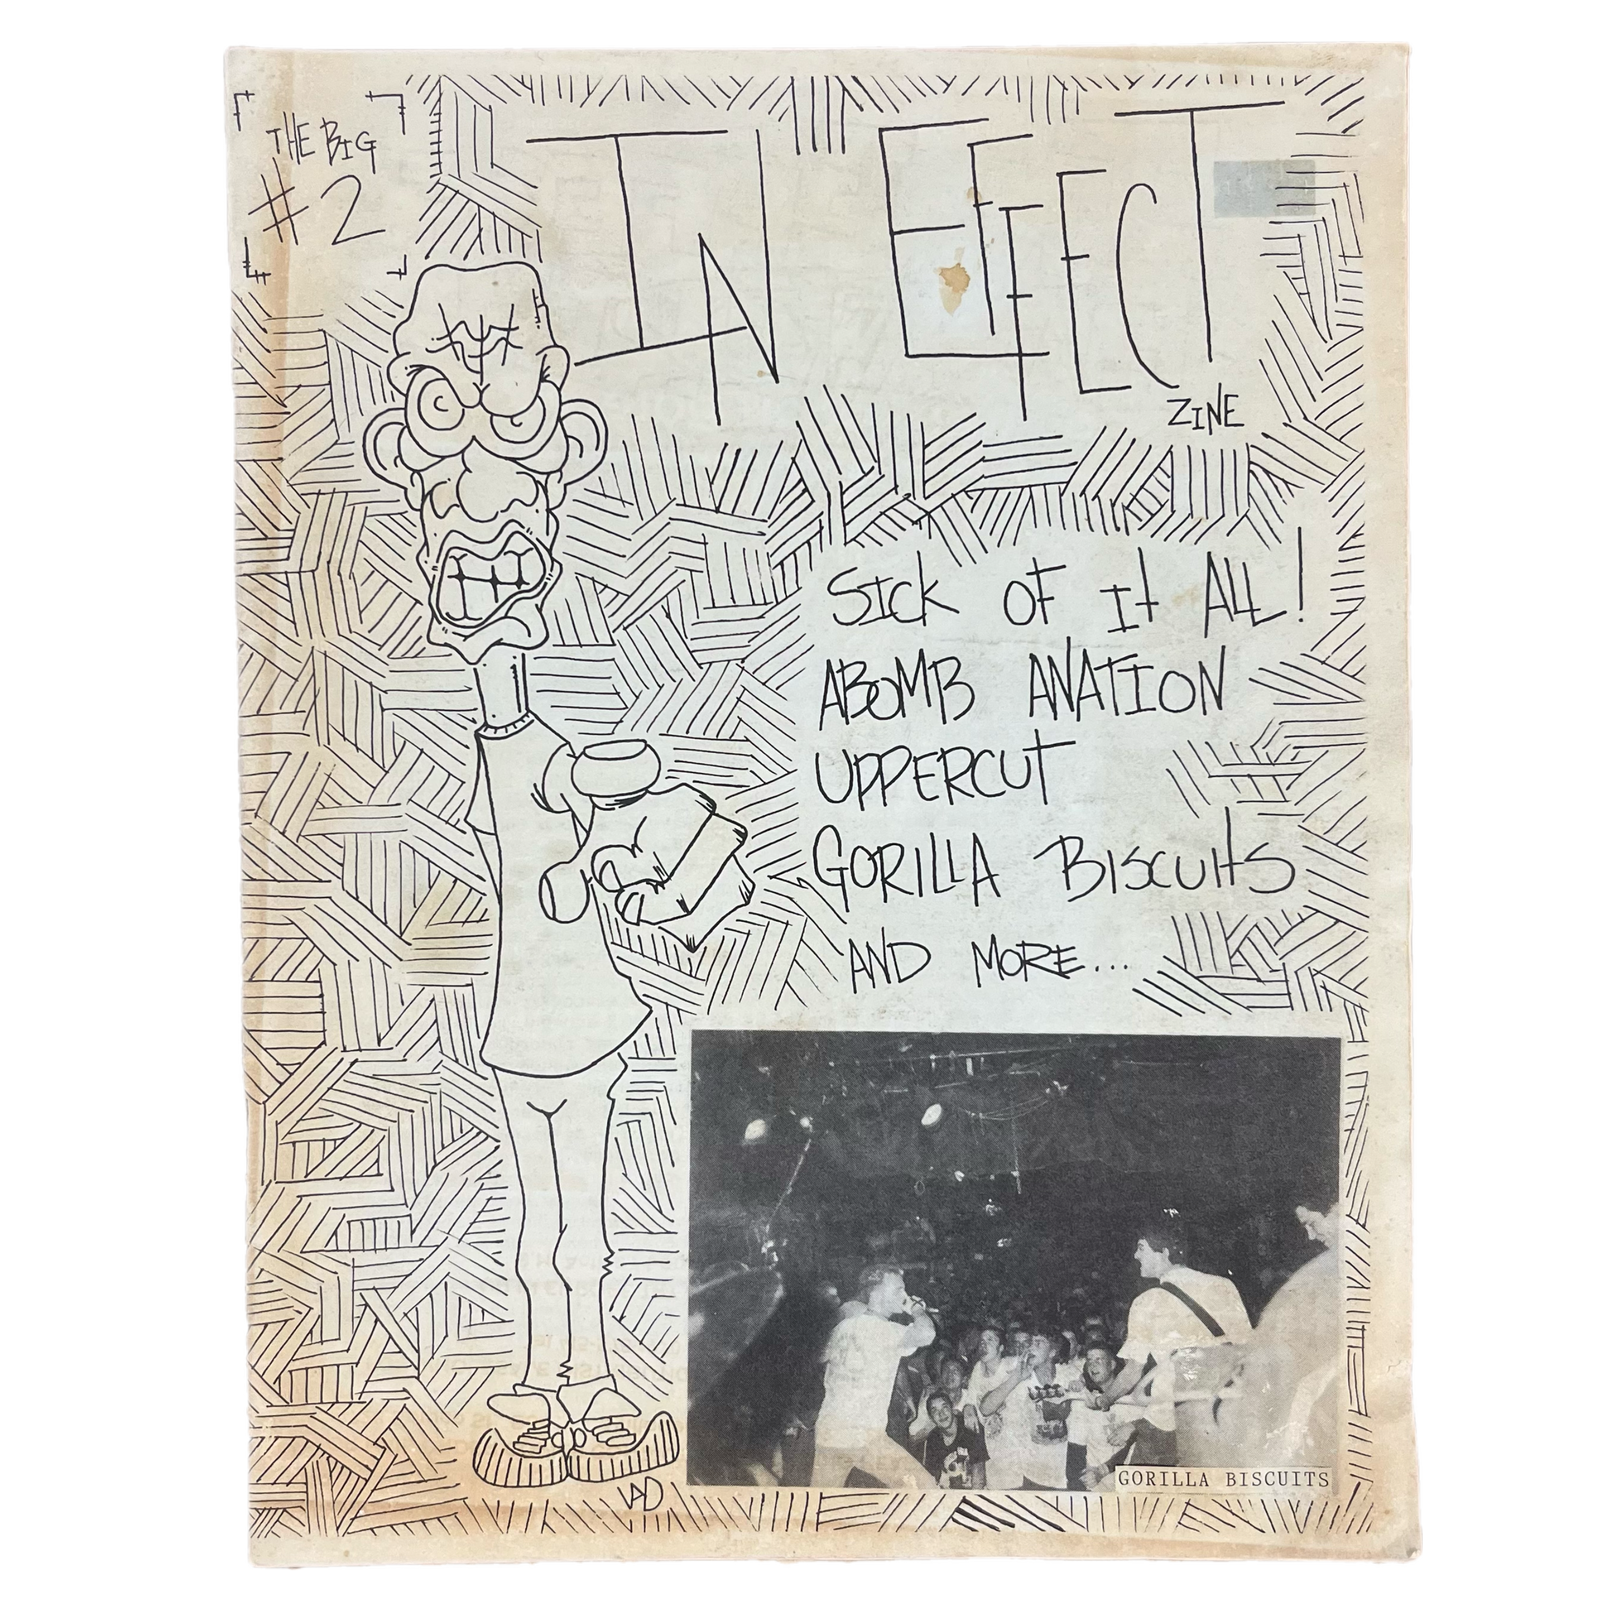 THE BIG
#2
IN EFFECT
ZINE
SICK OF It ALL!
ABOMB ANATION
UPPERCUT
GORILLA BISCUItS
AND MORE...
GORILLA BISCUITS